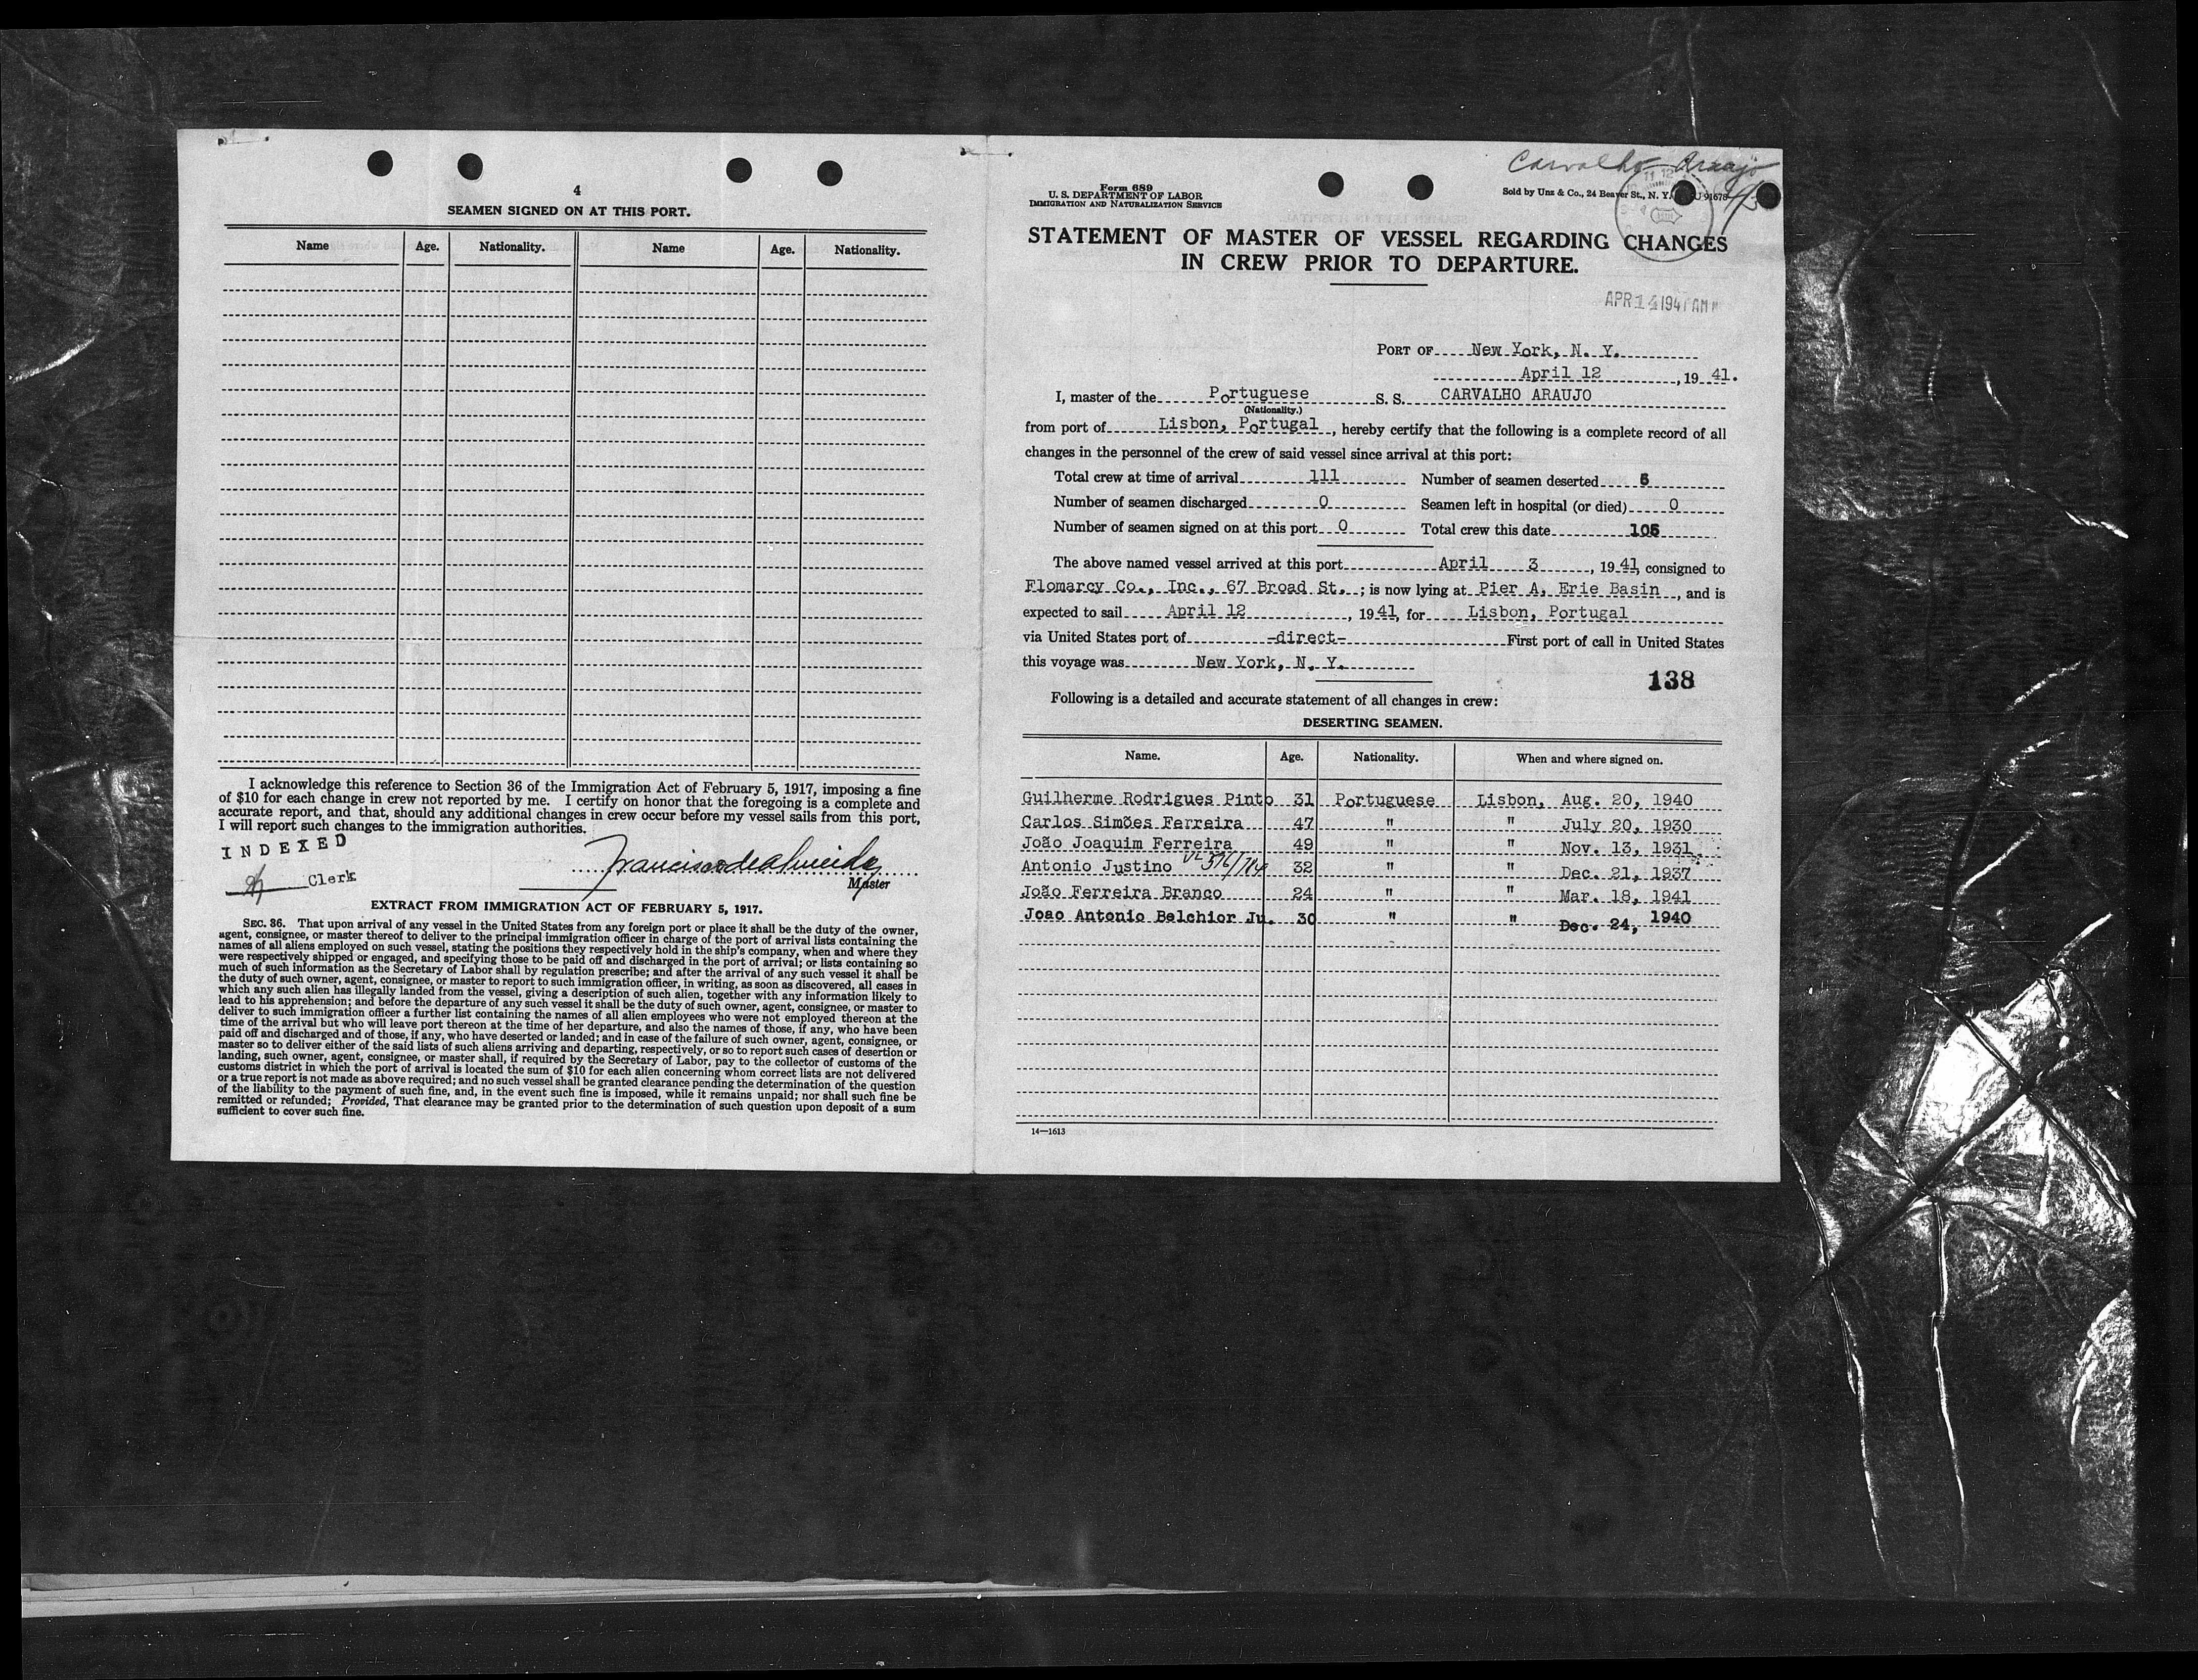 4
SEAMEN SIGNED ON AT THIS PORT.
Name Age. Nationality. Name Age. Nationality.
I acknowledge this reference to Section 36 of the Immigration Act of February 5, 1917, imposing a fine
of $10 for each change in crew not reported by me. I certify on honor that the foregoing is a complete and
accurate report, and that, should any additional changes in crew occur before my vessel sails from this port,
I will report such changes to the immigration authorities.
INDEXED
Clerk
Francisco de Almeida
Master
EXTRACT FROM IMMIGRATION ACT OF FEBRUARY 5, 1917.
SEC. 36. That upon arrival of any vessel in the United States from any foreign port or place it shall be the duty of the owner,
agent, consignee, or master thereof to deliver to the principal immigration officer in charge of the port of arrival lists containing the
names of all aliens employed on such vessel, stating the positions they respectively hold in the ship's company, when and where they
were respectively shipped or engaged, and specifying those to be paid off and discharged in the port of arrival; or lists containing so
much of such information as the Secretary of Labor shall by regulation prescribe; and after the arrival of any such vessel it shall be
the duty of such owner, agent, consignee, or master to report to such immigration officer, in writing, as soon as discovered, all cases in
which any such alien has illegally landed from the vessel, giving a description of such alien, together with any information likely to
lead to his apprehension; and before the departure of any such vessel it shall be the duty of such owner, agent, consignee, or master to
deliver to such immigration officer a further list containing the names of all alien employees who were not employed thereon at the
time of the arrival but who will leave port thereon at the time of her departure, and also the names of those, if any, who have been
paid off and discharged and of those, if any, who have deserted or landed; and in case of the failure of such owner, agent, consignee, or
master so to deliver either of the said lists of such aliens arriving and departing, respectively, or so to report such cases of desertion or
landing, such owner, agent, consignee, or master shall, if required by the Secretary of Labor, pay to the collector of customs of the
customs district in which the port of arrival is located the sum of $10 for each alien concerning whom correct lists are not delivered
or a true report is not made as above required; and no such vessel shall be granted clearance pending the determination of the question
of the liability to the payment of such fine, and, in the event such fine is imposed, while it remains unpaid; nor shall such fine be
remitted or refunded; Provided, That clearance may be granted prior to the determination of such question upon deposit of a sum
sufficient to cover such fine.
Carvalho Araujo
4/3
Form 689
U. S. DEPARTMENT OF LABOR
IMMIGRATION AND NATURALIZATION SERVICE
Sold by Unz & Co., 24 Beaver St., N. Y.
STATEMENT OF MASTER OF VESSEL REGARDING CHANGES
IN CREW PRIOR TO DEPARTURE.
APR 14 1941 AM
PORT OF New York, N. Y.
April 12, 1941.
I, master of the Portuguese S. S. CARVALHO ARAUJO
(Nationality.)
from port of Lisbon, Portugal, hereby certify that the following is a complete record of all
changes in the personnel of the crew of said vessel since arrival at this port:
Total crew at time of arrival 111 Number of seamen deserted
Number of seamen discharged 0 Seamen left in hospital (or died) 0
Number of seamen signed on at this port 0 Total crew this date 105
The above named vessel arrived at this port April 3, 1941, consigned to
Flomarcy Co., Inc., 67 Broad St.; is now lying at Pier A, Erie Basin, and is
expected to sail April 12, 1941, for Lisbon, Portugal
via United States port of -direct- First port of call in United States
this voyage was New York, N. Y.
138
Following is a detailed and accurate statement of all changes in crew:
DESERTING SEAMEN.
Name. Age. Nationality. When and where signed on.
Guilherme Rodrigues Pinto 31 Portuguese Lisbon, Aug. 20, 1940
Carlos Simões Ferreira 47 " " July 20, 1930
João Joaquim Ferreira 49 " " Nov. 13, 1931
Antonio Justino 32 " " Dec. 21, 1937
João Ferreira Branco 24 " " Mar. 18, 1941
Joao Antonio Belchior Ju. 30 " " Dec. 24, 1940
14—1613